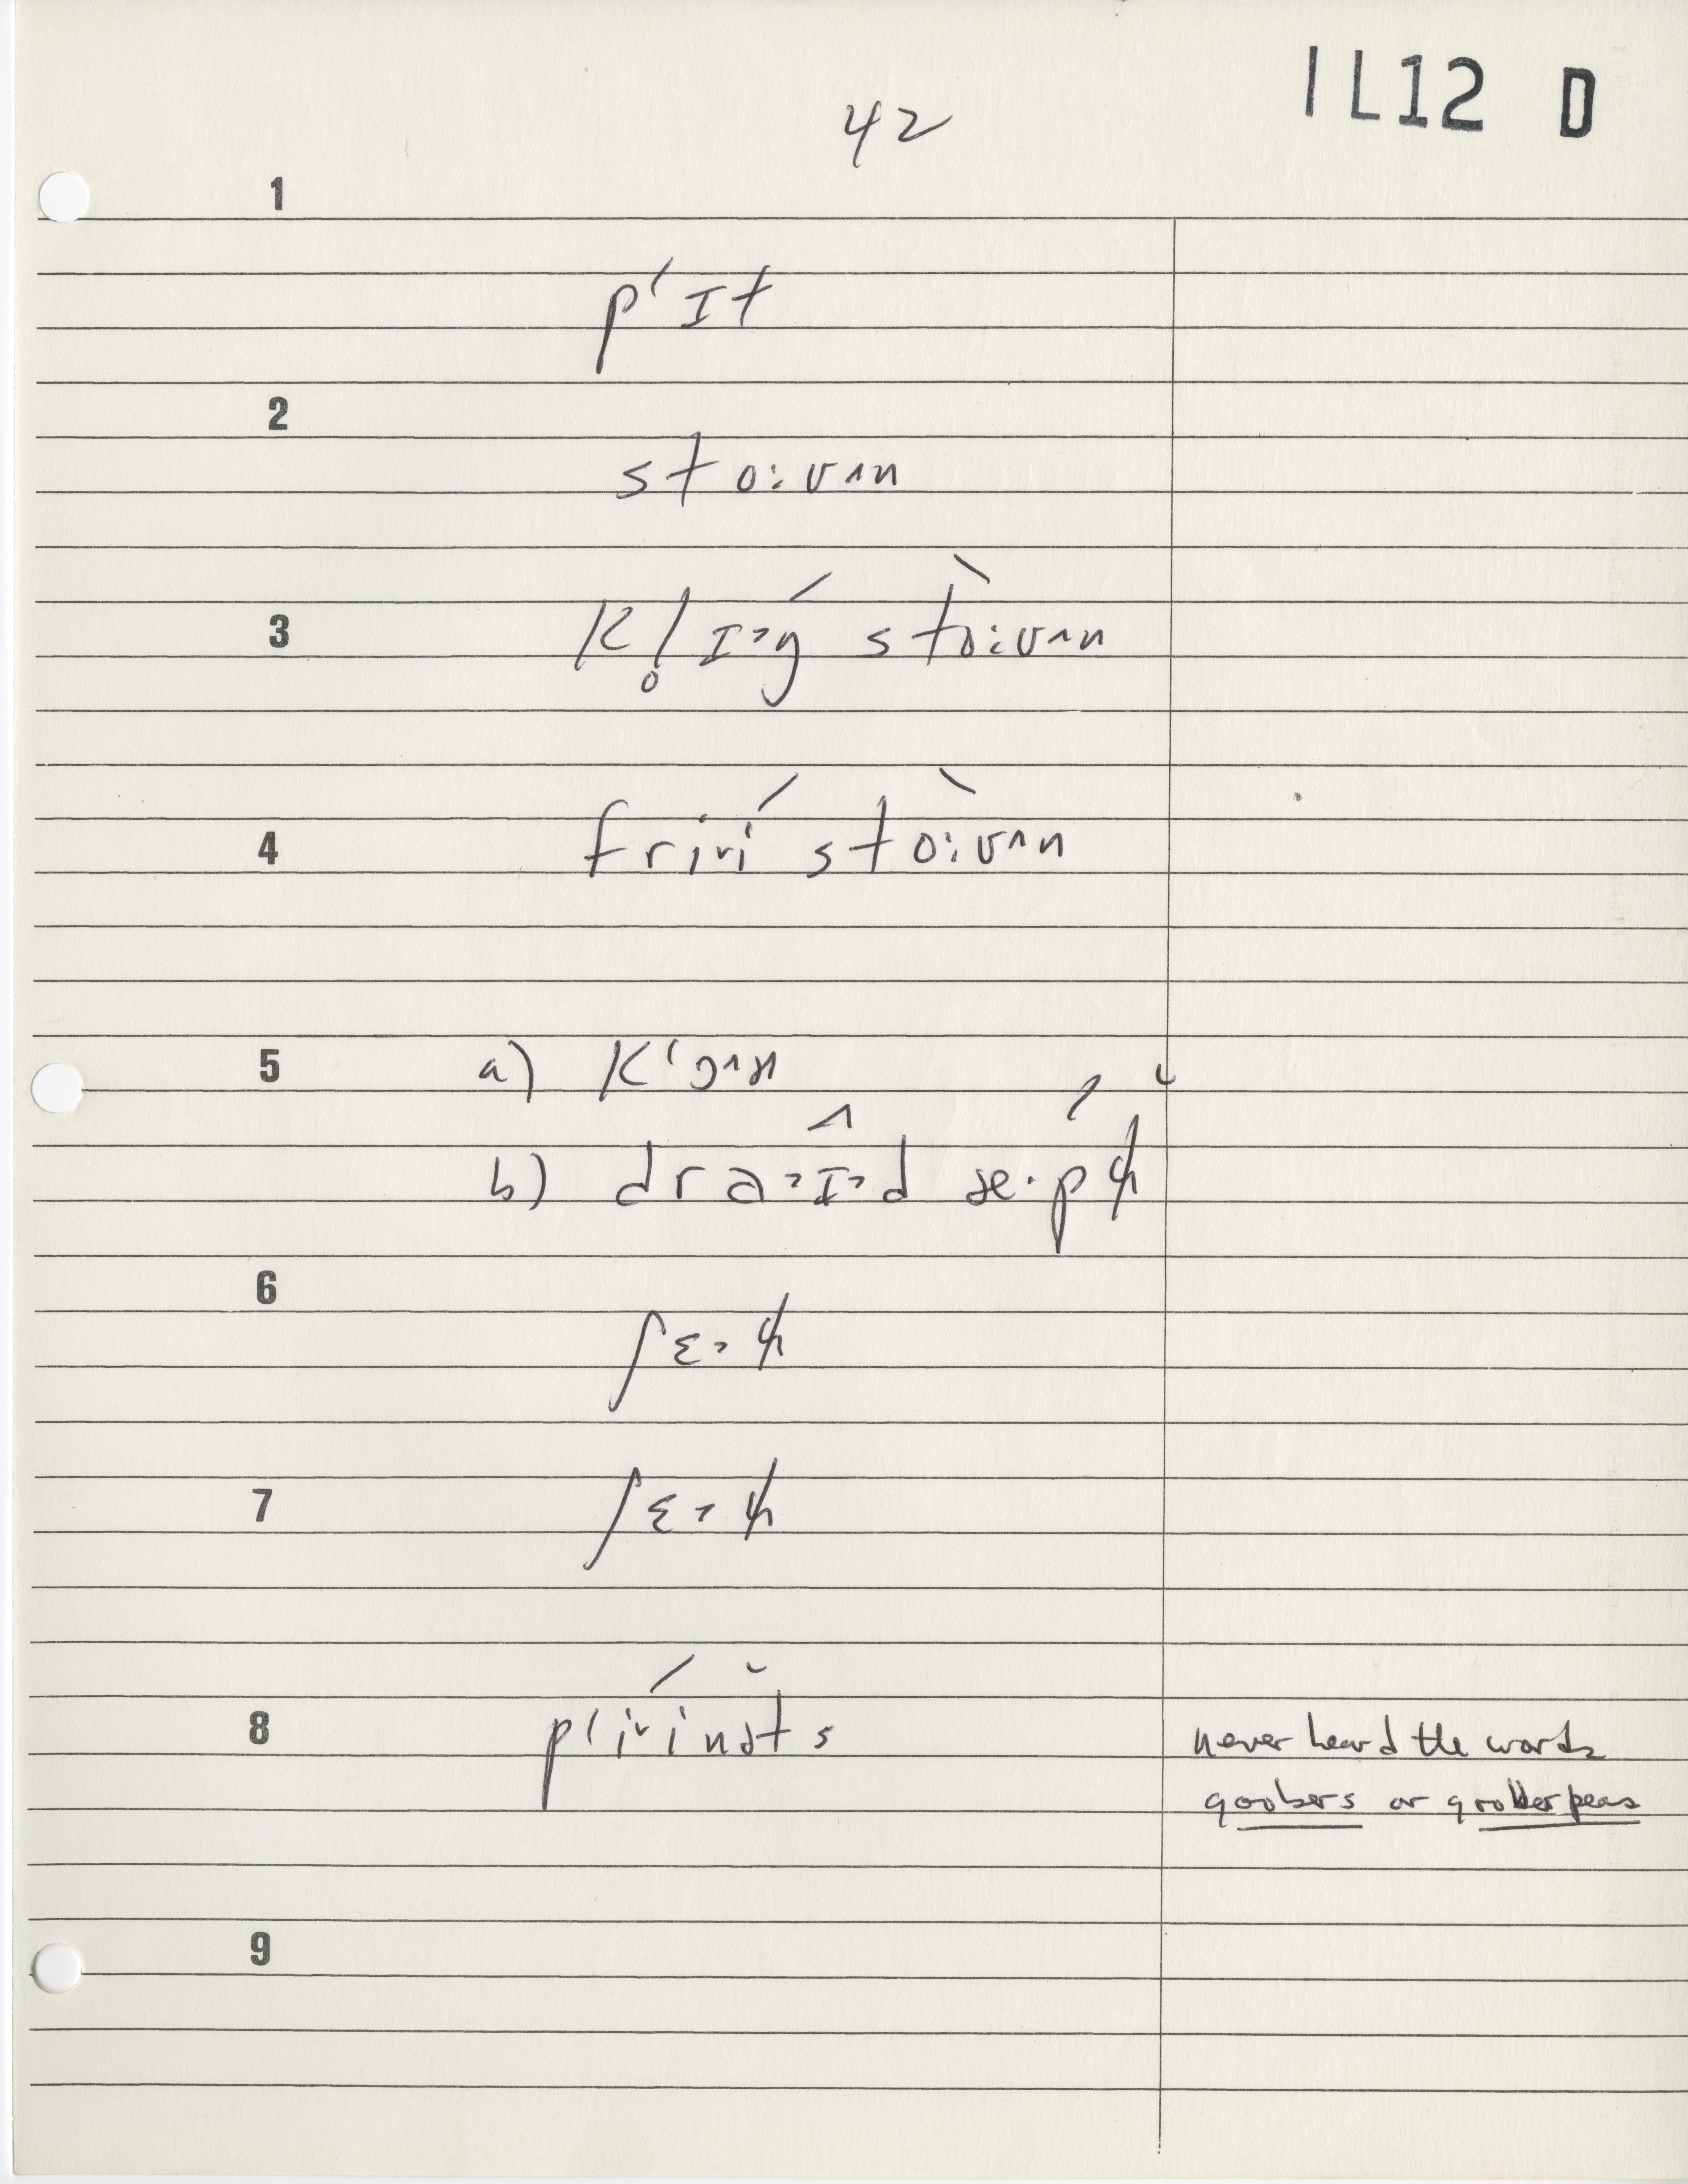 1L12 D
42
1
pʻɪt
2
sto·ᴜʌn
3
kl̥ɪ˃ŋ́ stò·ᴜʌn
4
fri˅í stò·ᴜʌn
5 a) kʻɔʌn
b) dra˃ɪ˃d
6
ʃɛ˃ɫ
7
ʃɛ˃ɫ
8
pʻi˅inəts
never heard the words
goobers or goober peas
9